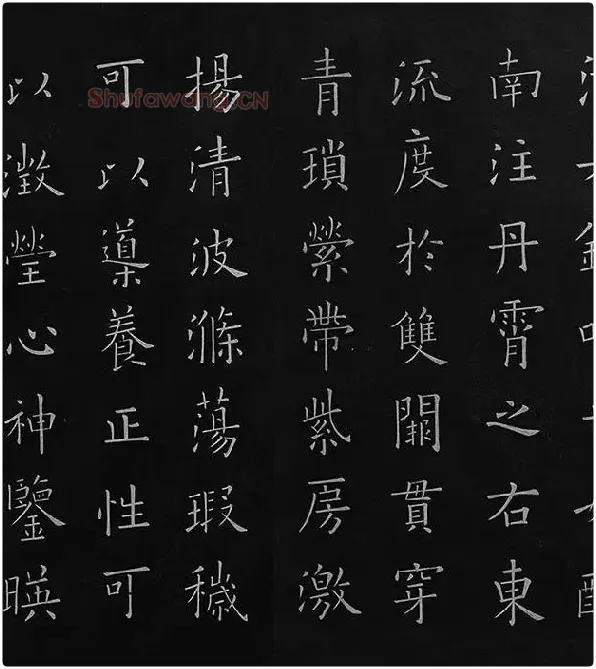 南注丹霄之右東
流度於雙闕貫穿
青瑣縈帶紫房激
揚清波滌蕩瑕穢
可以導養正性可
以澂瑩心神鑒暎
Shufawang.CN